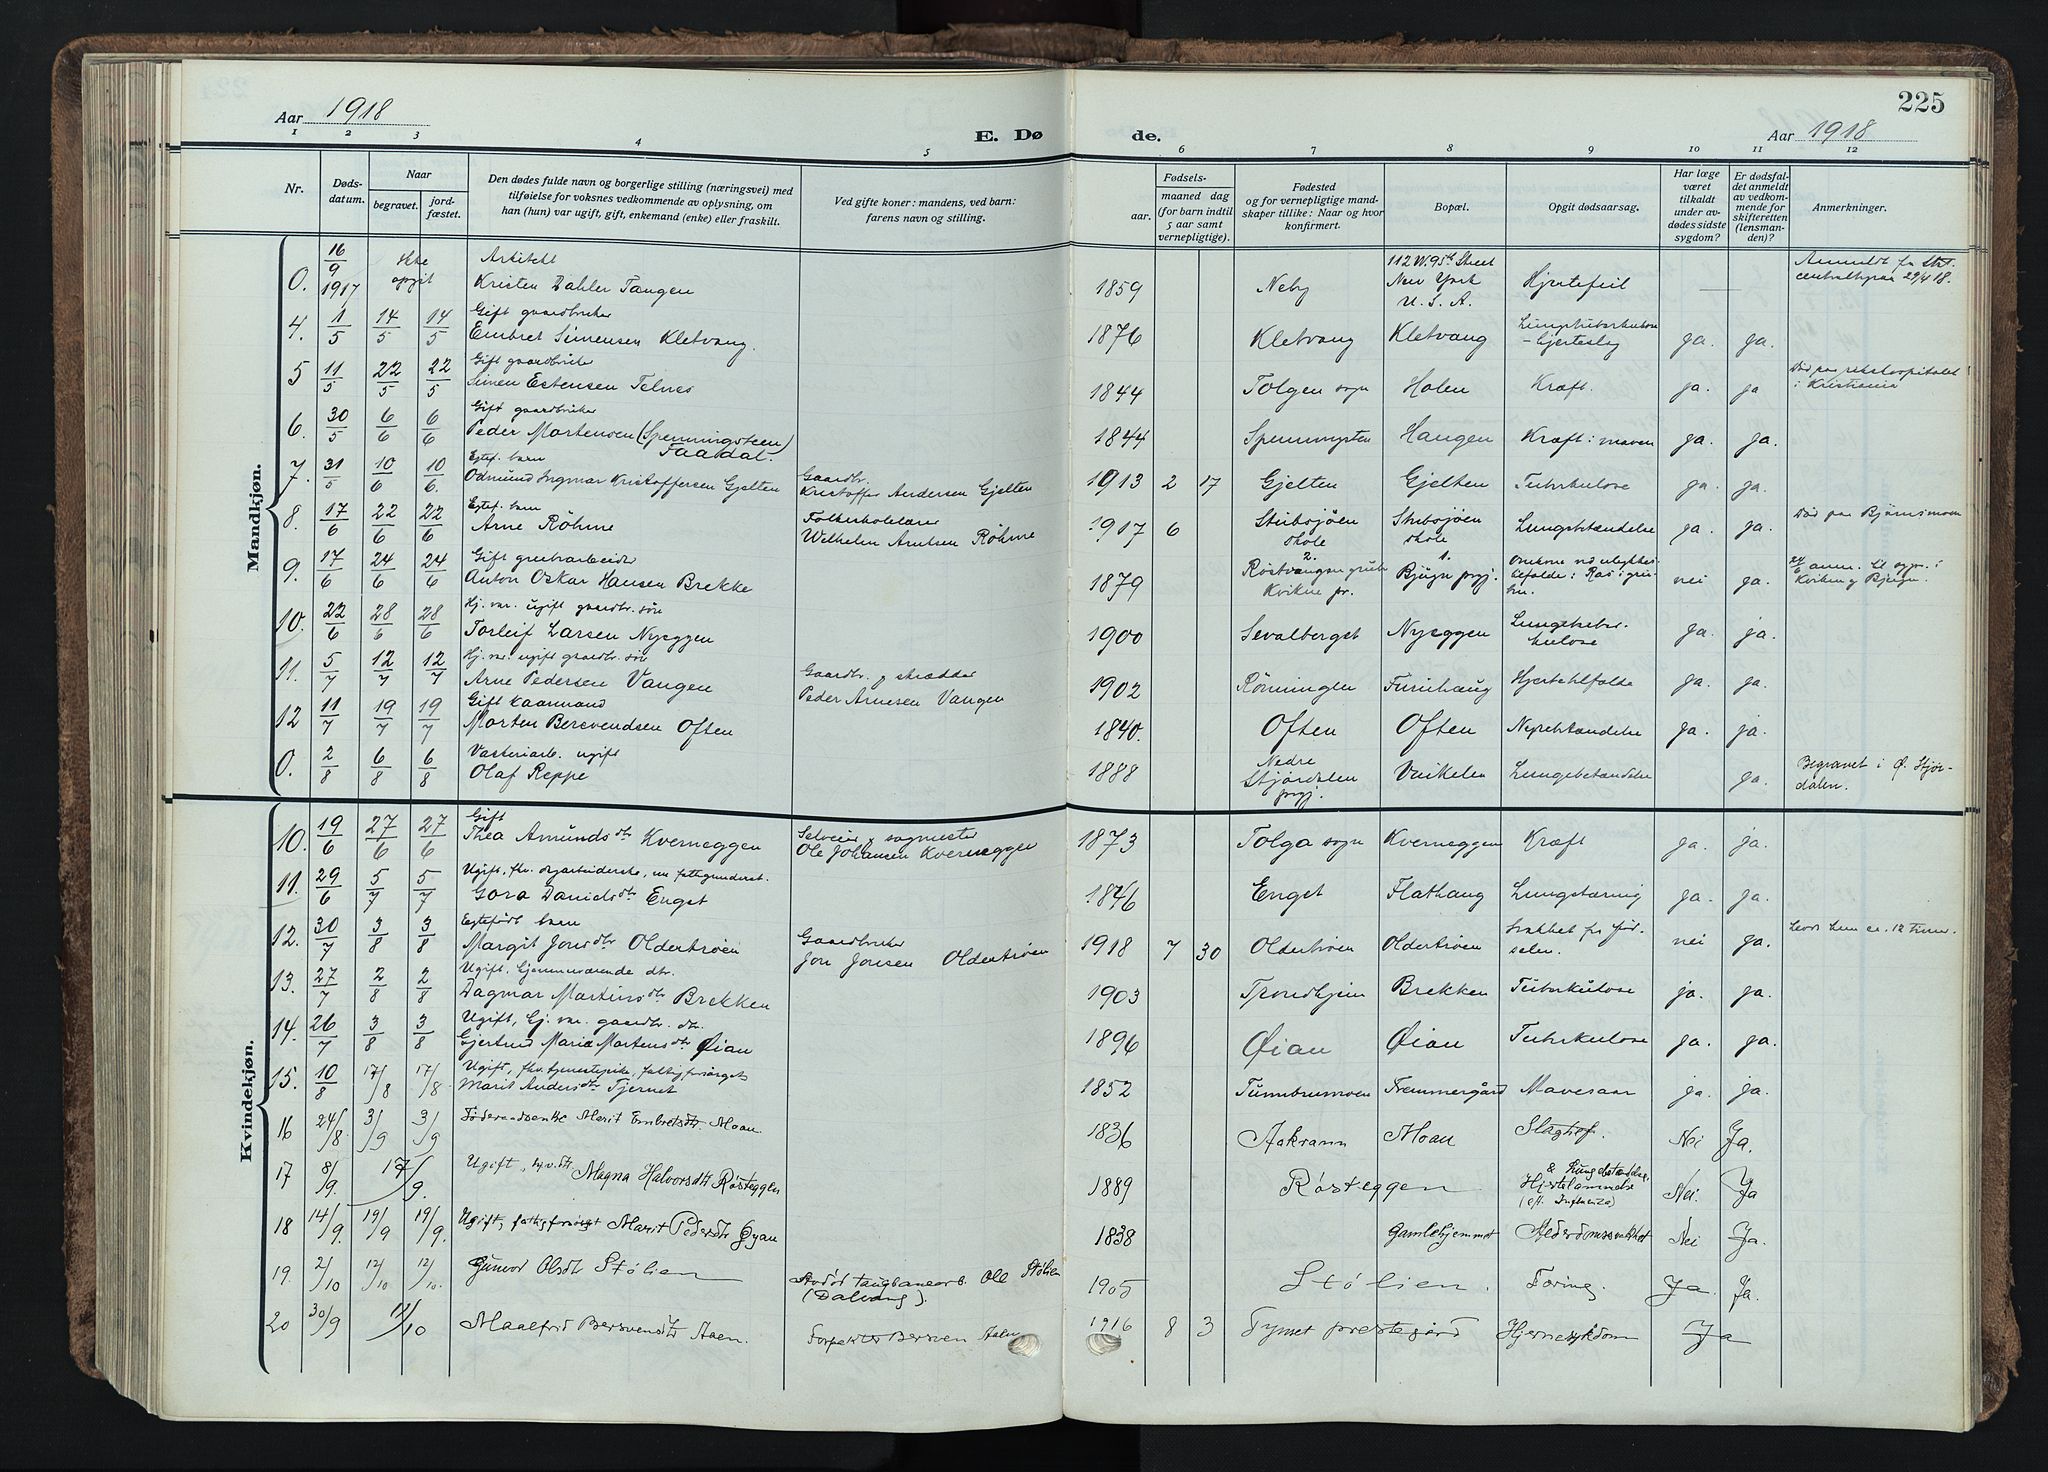 225
Aar 1918
E. Dø
de.
Aar 1918
1 2 3 4 5 6 7 8 9 10 11 12
Nr.
Døds-
datum.
Naar
begravet.
jord-
fæstet.
Den dødes fulde navn og borgerlige stilling (næringsvei) med
tilføielse for voksnes vedkommende av oplysning, om
han (hun) var ugift, gift, enkemand (enke) eller fraskilt.
Ved gifte koner: mandens, ved barn:
farens navn og stilling.
Fødsels-
aar.
maaned dag
(for barn indtil
5 aar samt
vernepligtige).
Fødested
og for vernepligtige mand-
skaper tillike: Naar og hvor
konfirmert.
Bopæl.
Opgit dødsaarsag.
Har læge
været
tilkaldt
under av-
dødes sidste
sygdom?
Er dødsfal-
det anmeldt
av vedkom-
mende for
skifteretten
(lensman-
den)?
Anmerkninger.
Mandkjøn.
0. 16/9 1917 Ikke opgit Arkitekt
Kristen Dahler Tangen 1859 Neby 112 W. 95th Street
New York
U. S. A. Hjertefeil Anmeldt fra
4. 1/5 14/5 14/5 Gift gaardbruker
Embret Simensen Kletvang. 1876 Kletvang Kletvang Lungetuberkulose ja. ja.
5 11/5 22/5 22/5 Gift gaardbruker
Simen Estensen Telnes 1844 Tolgen sogn Holen Kræft. ja. ja Død paa rikshospitalet
i Kristiania
6. 30/5 6/6 6/6 Gift gaardbruker
Peder Mortensen (Spenningsteen)
Faadal. 1844 Haugen Kræft i maven ja. ja.
7. 31/5 10/6 10/6. Egtef. barn
Odmund Ingmar Kristoffersen Gjelten Gaardbr.
Kristoffer Andersen Gjelten 1913 2 17 Gjelten Gjelten Tuberkulose ja. ja.
8. 17/6 22/6 22/6 Egtef. barn
Arne Røhme Folkeskolelærer
Wilhelm Arntsen Røhme 1917 6 Stubsjøen
skole Stubsjøen
skole Lungebetændelse ja. ja. Død paa Bjørnsmoen
9. 17/6 24/6 24/6 Gift grubearbeider
Anton Oskar Hansen Brekke 1879 2.
Røstvangen grube
Kvikne pr. 1.
Bjugn prgj. nei ja. Kvikne og Bjugn.
10. 22/6 28/6 28/6 Hj. vær. ugift gaardbr. søn
Torleif Larsen Nyeggen 1900 Sevalberget Nyeggen Lungetuber-
kulose ja. ja.
11. 5/7 12/7 12/7 Hj. vær. ugift gaardbr. søn
Arne Pedersen Vangen Gaardbr. og skrædder
Peder Arnesen Vangen 1902 Rønninglen Furuhaug ja. ja.
12 11/7 19/7 19/7 Gift kaarmand
Morten Bersvendsen Often 1840. Often Often Nyrebetændelse ja. ja.
0. 2/8 6/8 6/8 ugift
Olaf Reppe 1888 Nedre
Stjørdalen
prgj. Lungebetændelse ja. Begravet i Ø. Stjør-
dalen.
Kvindekjøn.
10. 19/6 27/6 27/6 Gift
Thea Amundsdtr Kverneggen Selveier og
Ole Johansen Kverneggen 1873 Tolga sogn Kverneggen Kræft ja. ja.
11. 29/6 5/7 5/7 Ugift, fhv.
Gora Danielsdtr Engst 1846 Engst Flathaug Lungetæring ja. ja.
12. 30/7 3/8 3/8 Egtefødt barn
Margit Jonsdtr Oldertrøen Gaardbruker
Jon Jonsen Oldertrøen 1918 7 30 Oldertrøen Oldertrøen Svakhet fra fød-
selen. nei ja. Levde kun ca. 12 timer.
13. 27/7 2/8 2/8 Ugift, hjemmeværende dtr.
Dagmar Martinsdtr Brekken 1903 Trondhjem Brekken Tuberkulose ja. ja.
14. 26/7 3/8 3/8 Ugift, hj. vær. gaardbr. dtr.
Gjertrud Maria Mortensdtr Øian 1896 Øian Øian Tuberkulose ja. ja.
15. 10/8 17/8 17/8 Ugift, fhv. tjenestepike, fattigforsørget
Marit Andersdtr Tjernet 1852 Tunnbrumoen Fremmergård Mavesaar ja. ja.
16 24/8 3/9 3/9 Føderaadsenke Marit Embretsdtr. Moan 1836 Aakrann Moan Slagtilf. Nei Ja.
17 8/9. 17/9. Ugift, Magna Halvorsdtr Røsteggen 1889 Røsteggen & Lungebetændelse
Hjertelammelse
(eft. Influenza) Nei. Ja
18 14/9. 19/9 19/9. Ugift, fattigforsørget Marit Pedersdtr Øyan 1838 Gamlehjemmet Alderdomssvakhet Nei Ja.
19. 2/10 12/10 12/10. Gunvor Olsdtr Stølien Ole Stølien
(Dalvang). 1905 Stølien. Tæring. Ja. Ja.
20 30/9 11/10 Maalfrid Bersvendsdtr Aaen. Forpakter Bersven Aaen 1916 8 3 Tynset prestegård Hjernesykdom Ja